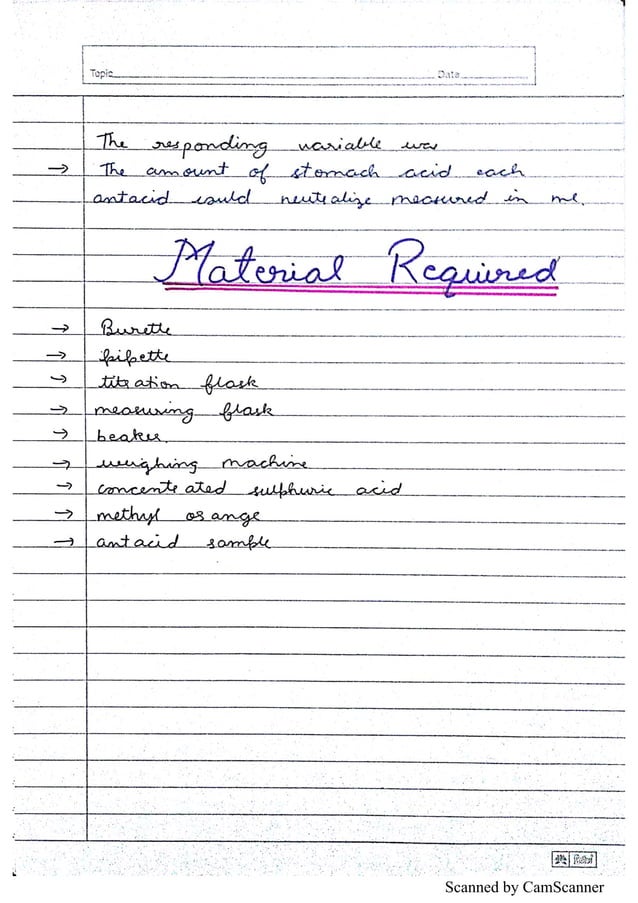 Topic Date
The responding variable was
→ The amount of stomach acid each
antacid could neutralize measured in ml.
Material Required
→ Burette
→ pipette
→ titration flask
→ measuring flask
→ beaker.
→ weighing machine
→ concentrated sulphuric acid
→ methyl orange
→ antacid sample
Scanned by CamScanner